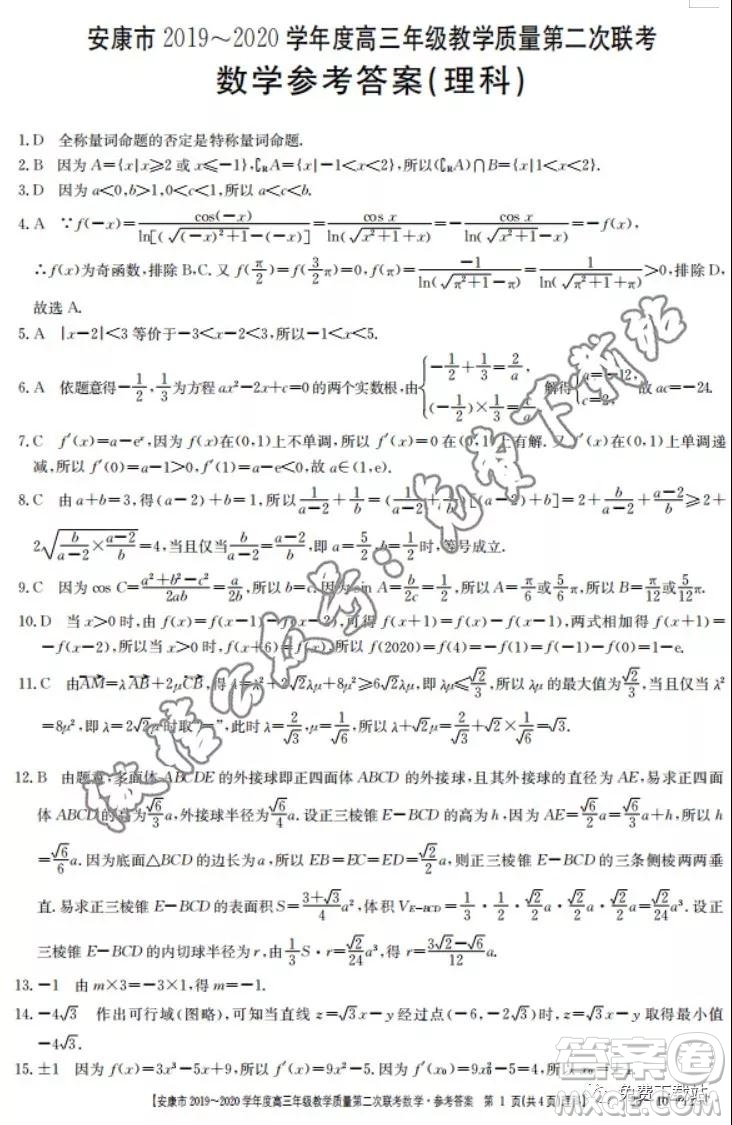 安康市 2019～2020 学年度高三年级教学质量第二次联考
数学参考答案(理科)
1. D 全称量词命题的否定是特称量词命题.
2. B 因为 A={x|x≥2 或 x≤-1},∁RA={x|-1<x<2},所以(∁RA)∩B={x|1<x<2}.
3. D 因为 a<0,b>1,0<c<1,所以 a<c<b.
4. A ∵f(-x)=cos(-x)/ln[(√((-x)²+1)-(-x)]=cos x/ln(√(x²+1)+x)=-cos x/ln(√(x²+1)-x)=-f(x),
∴f(x)为奇函数,排除 B,C. 又 f(π/2)=f(3/2 π)=0,f(π)=-1/ln(√(π²+1)-π)=1/ln(√(π²+1)+π)>0,排除 D,
故选 A.
5. A |x-2|<3 等价于-3<x-2<3,所以-1<x<5.
6. A 依题意得-1/2,1/3为方程 ax²-2x+c=0 的两个实数根,由{-1/2+1/3=2/a, (-1/2)×1/3=c/a, 解得{a=-12, c=2, 故 ac=-24.
7. C f′(x)=a-eˣ,因为 f(x)在(0,1)上不单调,所以 f′(x)=0 在(0,1)上有解. 又 f′(x)在(0,1)上单调递
减,所以 f′(0)=a-1>0,f′(1)=a-e<0,故 a∈(1,e).
8. C 由 a+b=3,得(a-2)+b=1,所以1/(a-2)+1/b=(1/(a-2)+1/b)[(a-2)+b]=2+b/(a-2)+(a-2)/b≥2+
2√(b/(a-2)×(a-2)/b)=4,当且仅当b/(a-2)=(a-2)/b,即 a=5/2,b=1/2时,等号成立.
9. C 因为 cos C=(a²+b²-c²)/2ab=a/2b,所以 b=c. 因为 sin A=b/2c=1/2,所以 A=π/6或5/6π,所以 B=π/12或5/12π.
10. D 当 x>0 时,由 f(x)=f(x-1)-f(x-2),可得 f(x+1)=f(x)-f(x-1),两式相加得 f(x+1)=
-f(x-2),所以当 x>0 时,f(x+6)=f(x),所以 f(2020)=f(4)=-f(1)=f(-1)-f(0)=1-e.
11. C 由AM=λAB+2μCB,得 4=λ²+2√2λμ+8μ²≥6√2λμ,即 λμ≤√2/3,所以 λμ 的最大值为√2/3,当且仅当 λ²
=8μ²,即 λ=2√2μ时取“=”,此时 λ=2/√3,μ=1/√6,所以 λ+√2μ=2/√3+√2×1/√6=√3.
12. B 由题意,多面体 ABCDE 的外接球即正四面体 ABCD 的外接球,且其外接球的直径为 AE,易求正四面
体 ABCD的高为√6/3a,外接球半径为√6/4a. 设正三棱锥 E-BCD 的高为 h,因为 AE=√6/2a=√6/3a+h,所以 h
=√6/6a. 因为底面△BCD 的边长为 a,所以 EB=EC=ED=√2/2a,则正三棱锥 E-BCD 的三条侧棱两两垂
直. 易求正三棱锥 E-BCD 的表面积 S=(3+√3)/4a²,体积 V_{E-BCD}=1/3·1/2·√2/2a·√2/2a·√2/2a=√2/24a³. 设正
三棱锥 E-BCD 的内切球半径为 r,由1/3S·r=√2/24a³,得 r=(3√2-√6)/12a.
13. -1 由 m×3=-3×1,得 m=-1.
14. -4√3 作出可行域(图略),可知当直线 z=√3x-y 经过点(-6,-2√3)时,z=√3x-y 取得最小值
-4√3.
15. ±1 因为 f(x)=3x³-5x+9,所以 f′(x)=9x²-5. 因为 f′(x₀)=9x₀²-5=4,所以 x₀=±1.
【安康市 2019～2020 学年度高三年级教学质量第二次联考数学·参考答案 第 1 页(共 4 页)
微信公众号：免费下载站
免费下载站
答案圈